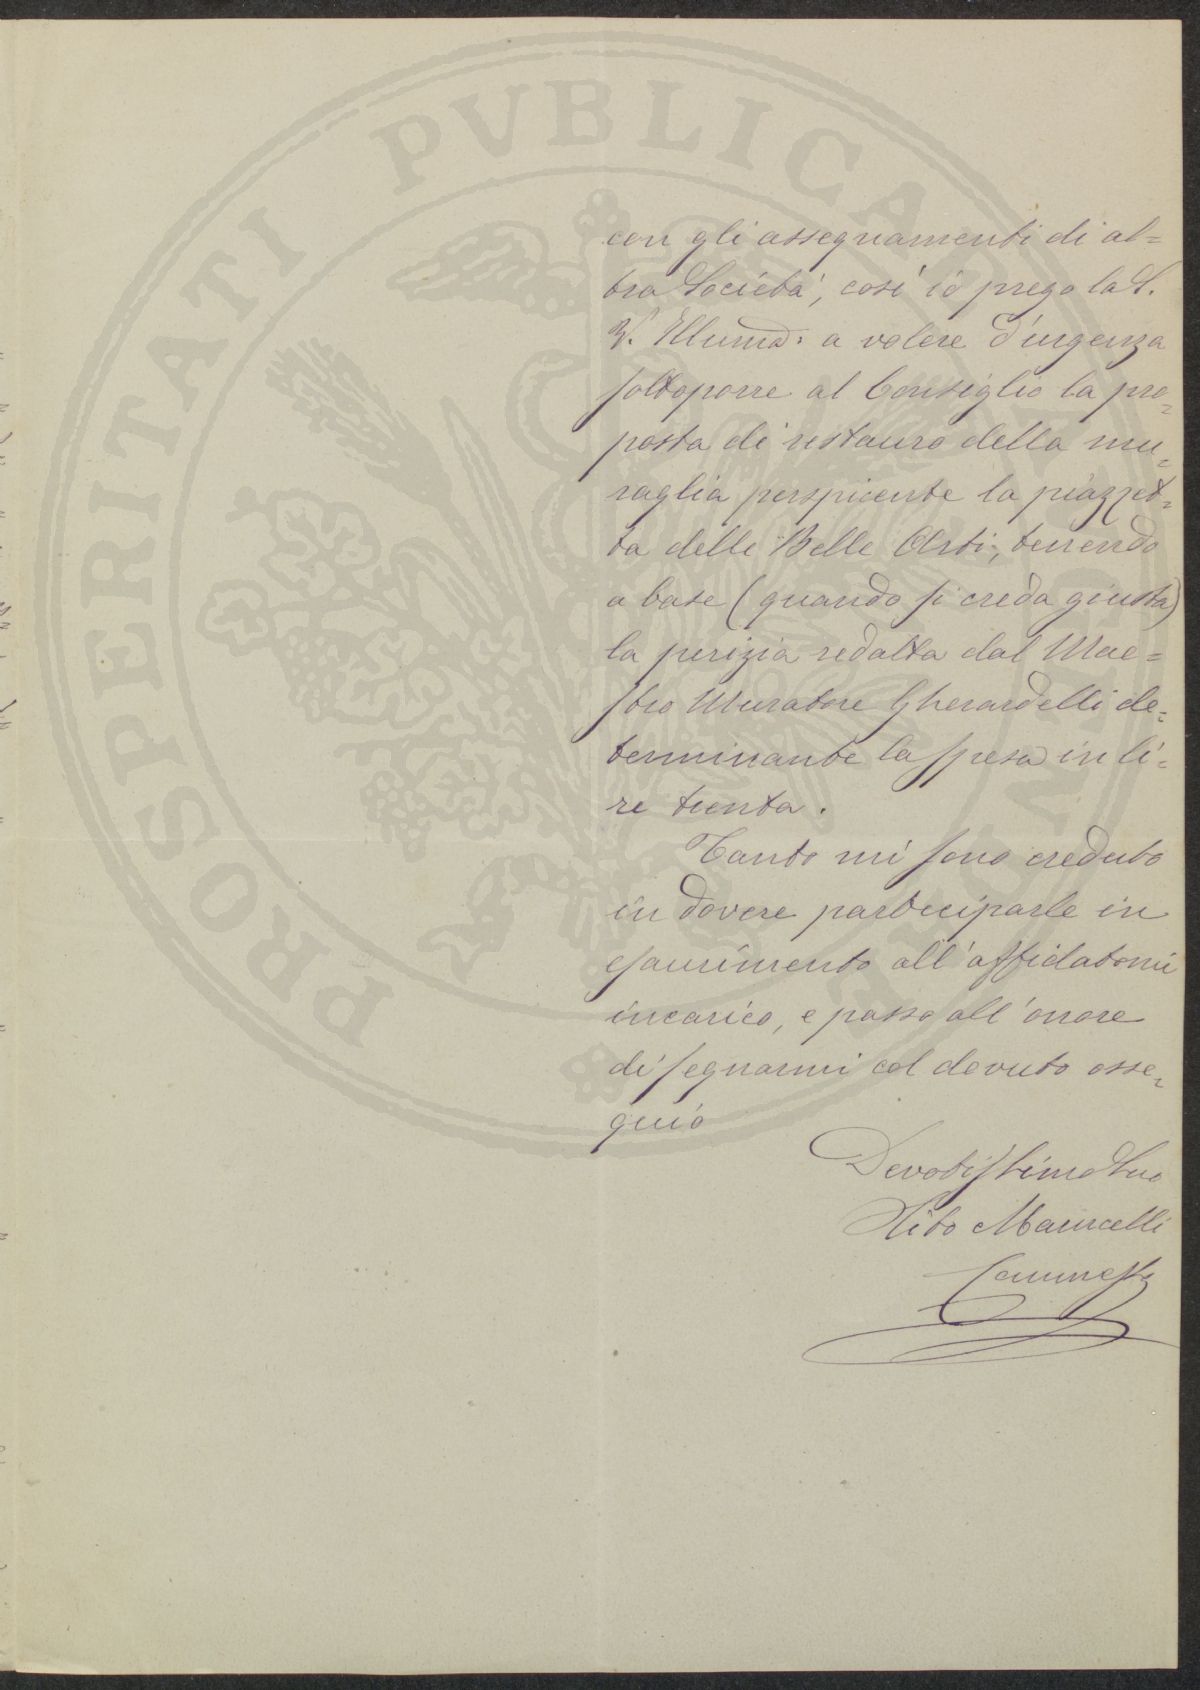 PROSPERITATI PVBLICAE AVGENDAE
con gli assegnamenti di al=
tra Società, così io prego la S.
V. Illuma: a volere d'urgenza
sottoporre al Consiglio la pro=
posta di restauro della mu=
raglia perspicente la piazzet=
ta delle Belle Arti, tenendo
a base (quando si creda giusta)
la perizia redatta dal Mae=
stro Muratore Gherardelli de=
terminante la spesa in li=
re trenta.
Tanto mi sono creduto
in dovere parteciparle in
esaurimento all'affidatomi
incarico, e passo all'onore
di segnarmi col dovuto osse=
quio
Devotissimo Suo
Tito